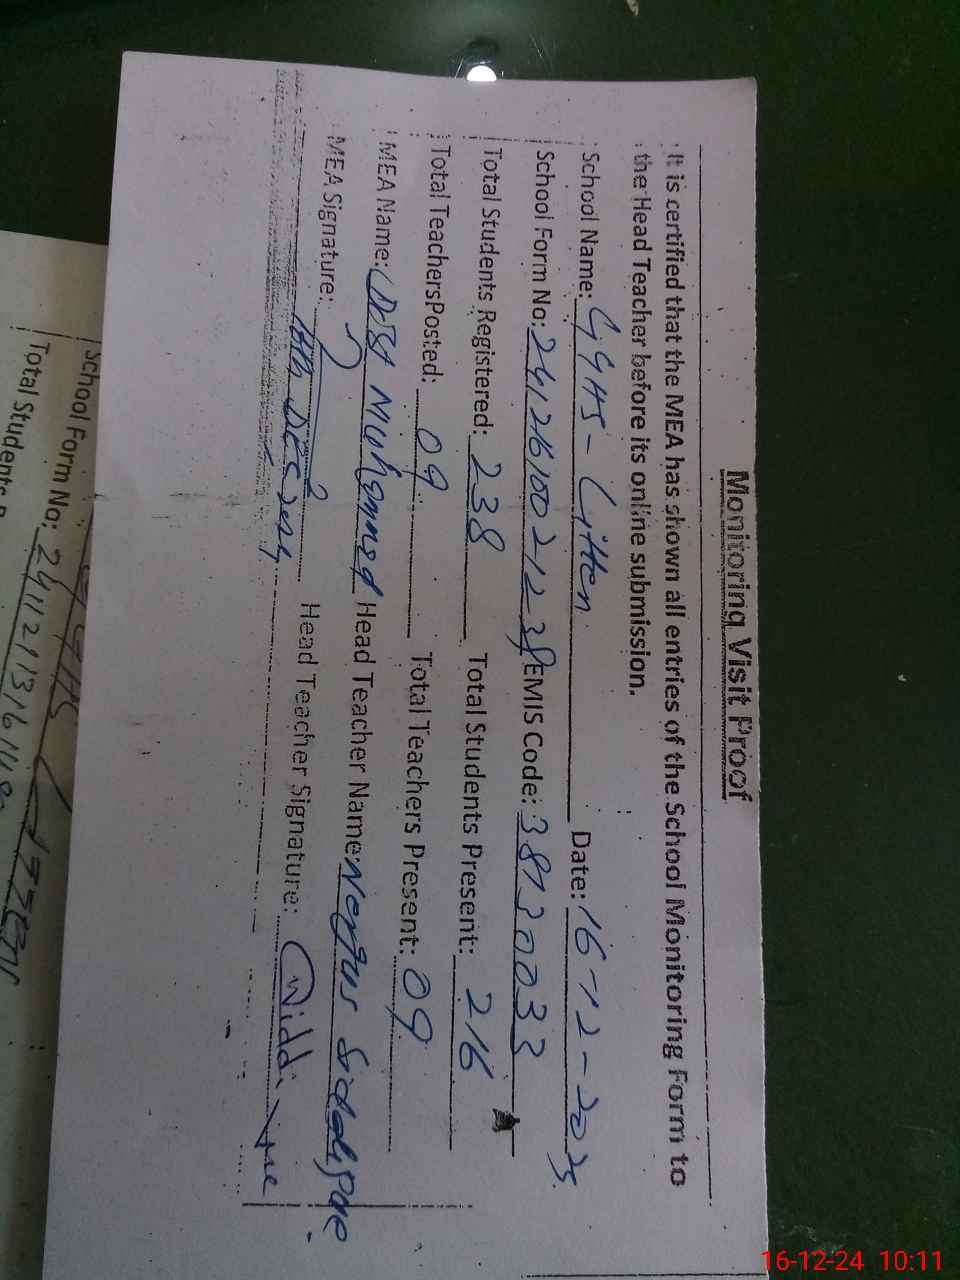 Monitoring Visit Proof
It is certified that the MEA has shown all entries of the School Monitoring Form to
the Head Teacher before its online submission.
School Name: GGHS - Litten Date: 16-12-2025.
School Form No: 24121610021238 EMIS Code: 38130033
Total Students Registered: 238 Total Students Present: 216
Total TeachersPosted: 09 Total Teachers Present: 09
MEA Name: Dost Muhammad Head Teacher Name: Nergus Siddique
MEA Signature: Head Teacher Signature:
School Form No:
Total Students
16-12-24 10:11